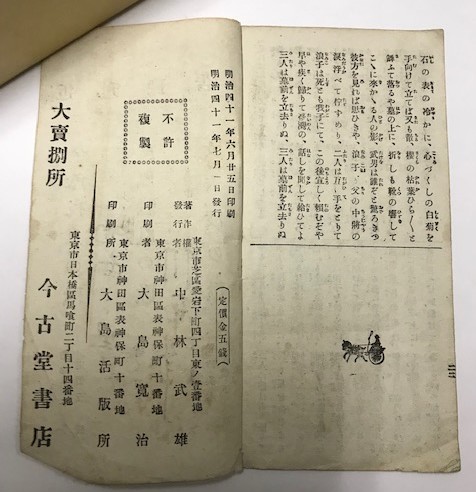 石の表の冷かに、心づくしの白菊を
手向けて立てば又も散る、櫻の枯葉ひら〱と
舞ふて落るや墓の上に、折しも靴の響して
こゝに來かゝる人の影、武男は誰ぞと驚ろきつ
彼方を見れば思ひきや、浪子が父の中將の
涙浮べて佇ずめり、二人は互に手をとりて
浪子は死とも我子にて、この後宜しく頼むぞや
早や疾く歸りて臺灣の、話しを聞して給ひてよ
三人は墓前を立去りぬ、三人は墓前を立去りぬ
明治四十一年六月廿五日印刷
明治四十一年七月一日發行
不許
複製
(定價金五錢)
東京市芝區愛宕下町四丁目東ノ壹番地
著作權
發行者 中林武雄
東京市神田區表神保町十番地
印刷者 大島寬治
東京市神田區表神保町十番地
印刷所 大島活版所
大賣捌所
東京市日本橋區馬喰町二丁目十四番地
今古堂書店